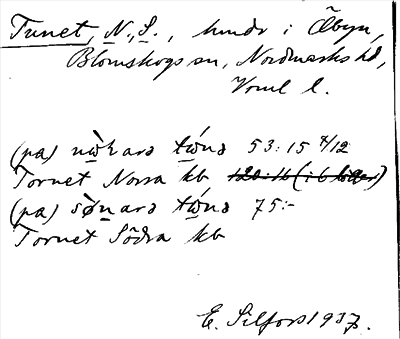 Tunet, N., S., hmdr i Åbyn,
Blomskogs sn, Nordmarks hd,
Vrml l.
(pa) nωkara tωna 53:15 4/12
Tornet Norra kb
(pa) sønara tωna 75:-
Tornet Södra kb
E. Silfors 1937.